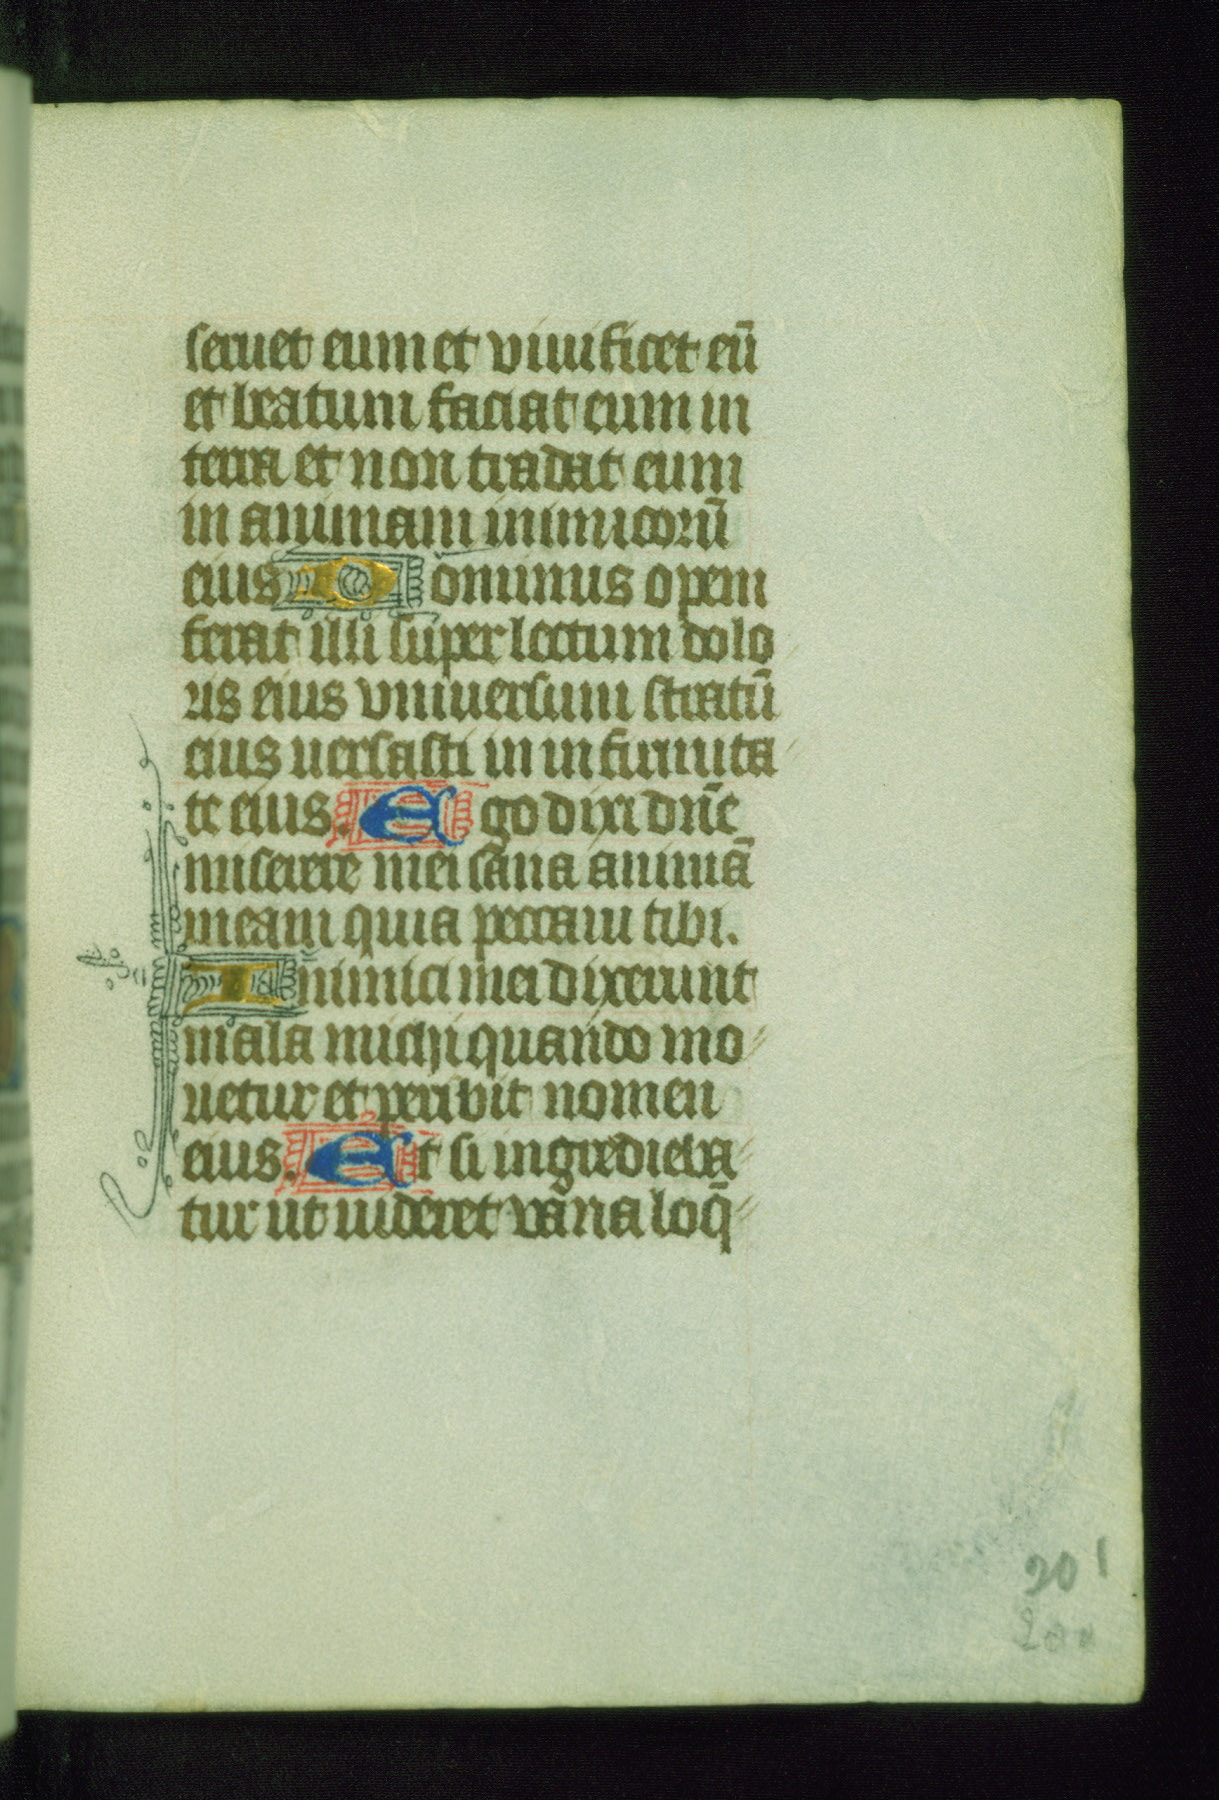 seruet eum et viuificet eū
et beatum faciat eum in
terra et non tradat eum
in animam inimicorū
eius Dominus opem
ferat illi super lectum dolo
ris eius vniuersum stratū
eius uersasti in infirmita
te eius. Ego dixi dn̄e
miserere mei sana animā
meam quia peccaui tibi.
Inimici mei dixerunt
mala michi quando mo
uetur et peribit nomen
eius. Et si ingredieba
tur ut uideret vana loq̄
201